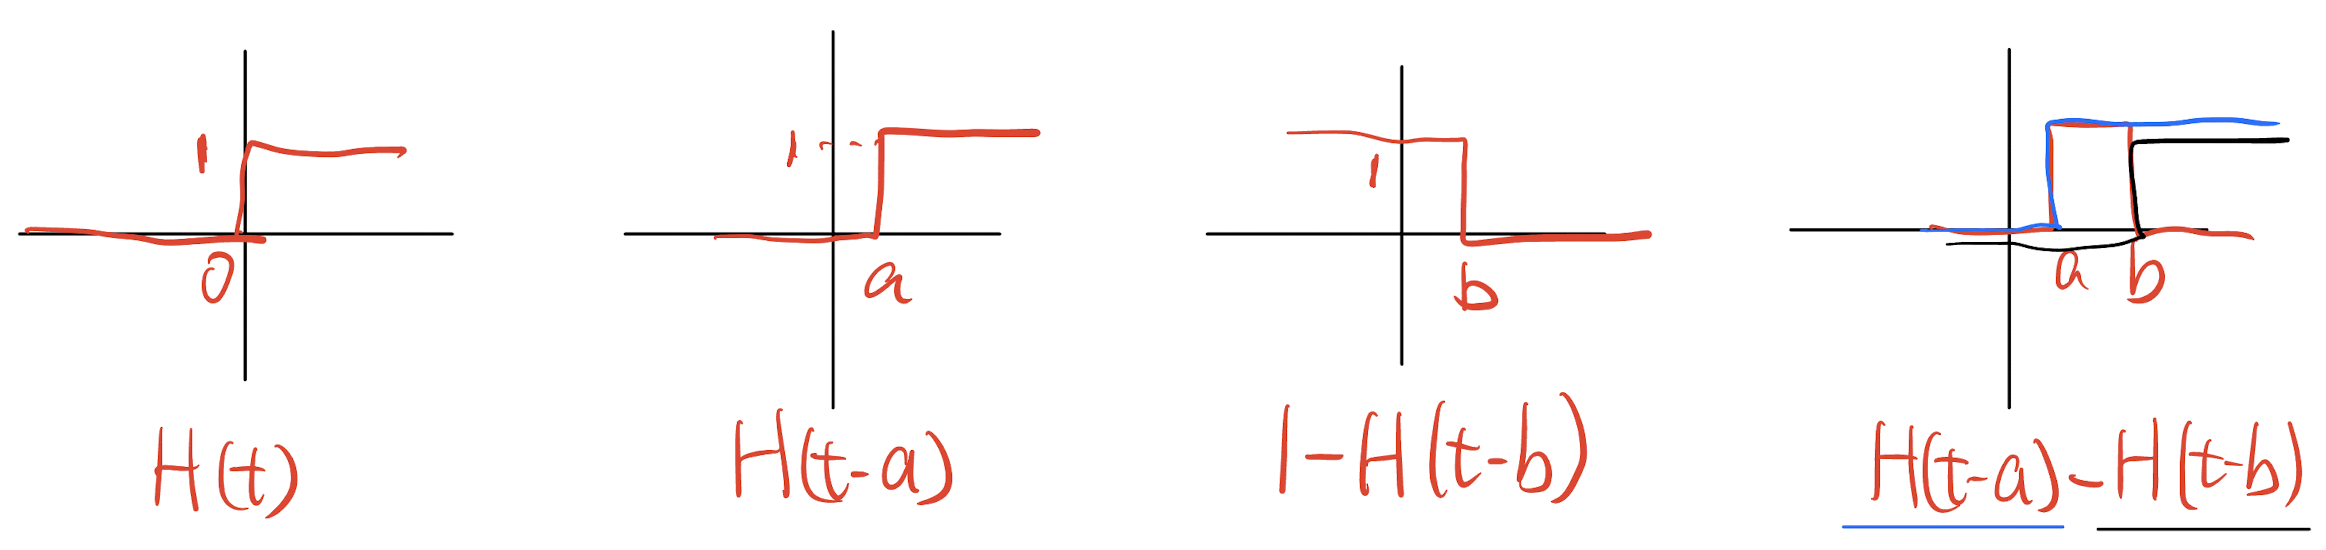 1
0
H(t)
1
a
H(t-a)
1
b
1-H(t-b)
a b
H(t-a)-H(t-b)